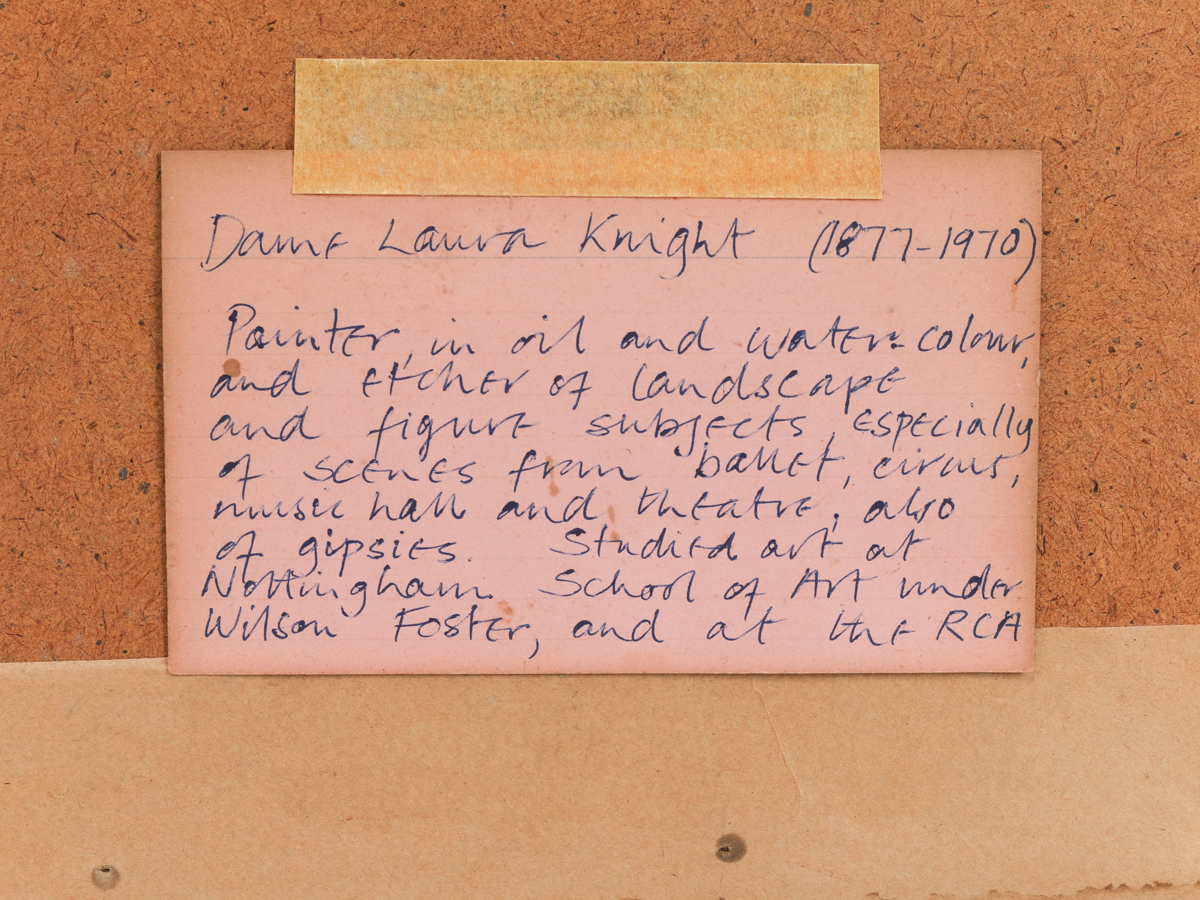 Dame Laura Knight (1877-1970)
Painter, in oil and water-colour,
and etcher of landscape
and figure subjects, especially
of scenes from ballet, circus,
music hall and theatre; also
of gipsies. Studied art at
Nottingham School of Art under
Wilson Foster, and at the RCA